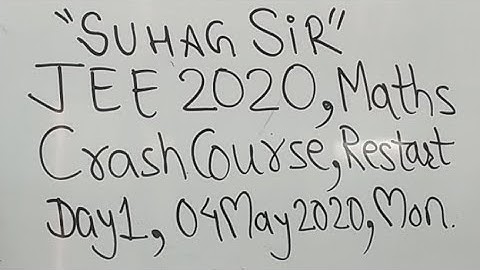 "SUHAG SIR"
JEE 2020, Maths
Crash Course, Restart
Day1, 04May2020, Mon.